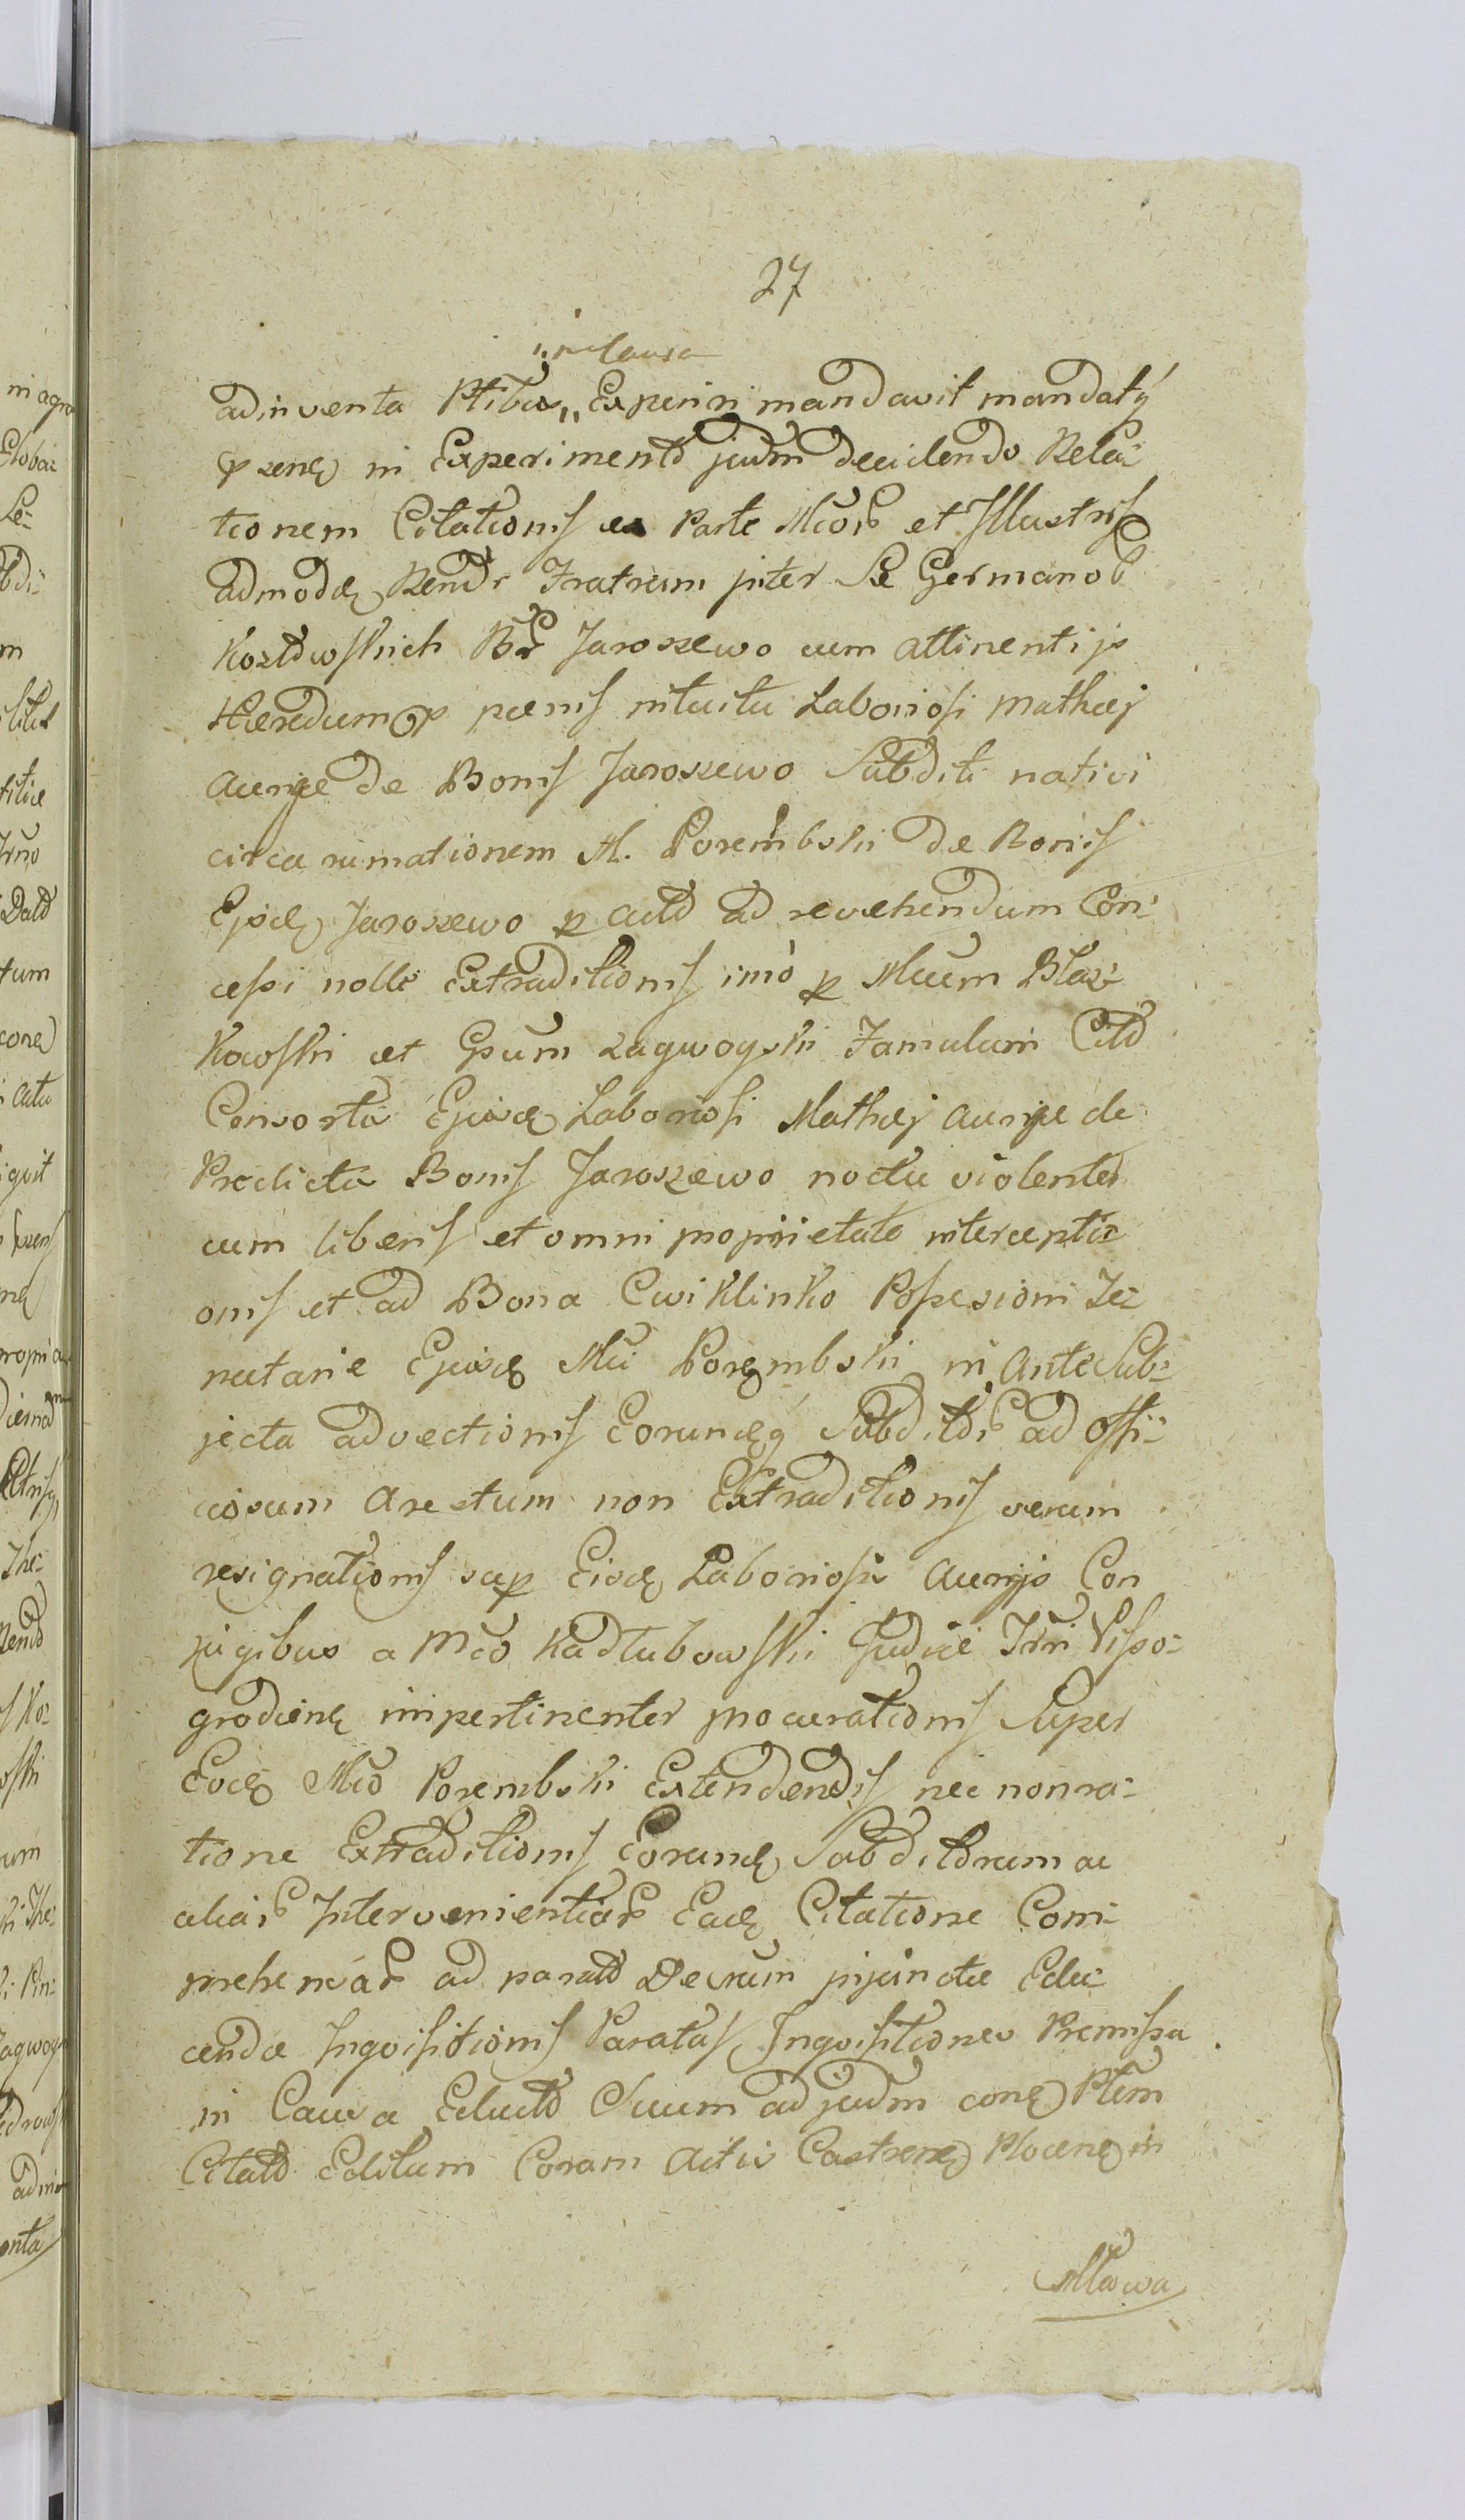 27
in Causa
adinventa Ptibus,, Experiri mandavit mandatq
psens in Experimento judm decidendo Rela-
tionem Citationis ex Parte Mcor et Illustris
admodum Rendi Fratrum inter Se Germanor
Kozłowskich Br Jaroszewo cum attinentijs
Hæredum pænis intuitu Laboriosi Mathæj
de Bonis Jaroszewo Subditi nativi
circa rumationem M. Porembski de Bonis
Ejusd Jaroszewo p acto ad revehendum Con-
cessi nolle Extraditionis imò p Mcum Błaz-
kowski et Gsum Zagwoyski Famulum Cito
Consorta Ejusd Laboriosi Mathæj de
Predicta Bonis Jaroszewo noctu violenter
cum liberis et omni proprietate intercepti-
onis et ad Bona Cwiklinko Possesioni Te-
nutarie Ejusd Mci Porembski in Ante Sub-
jecta advectionis Eorundq Subditor ad offi-
ciosum Arestum non Extraditionis verum
resignationis sup Eisd Laboriosis Con
jugibus a Mco Kadłubowski Judice Trri Visso-
grodiens impertinenter procurationis Super
Eode Mco Porembski Extendendis nec non ra-
tione Extraditionis Eorund Subditorum ac
aliar Intervenientiar Ead Citatione Com-
prehensar ad parato Decrum injuncta Edu-
cenda Ingvisitionis Paratas Ingvisitiones Premissa
in Causa Educto Suum ad judm cons Ptem
Citato Editum Coram Actis Castrens Plocens in
Mława